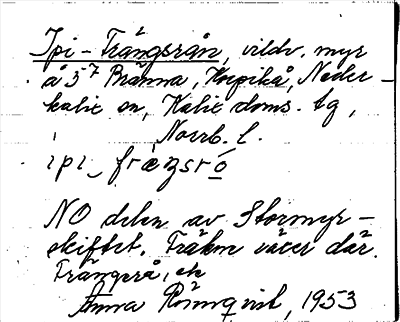 Ipi-Frängsrån, vildv. myr
å 5⁷ Bränna, Korpikå, Neder-
kalix sn, Kalix doms. tg,
Norrb. l.
ipi_ fræŋsrö
NO delen av Stormyr-
skiftet. Fräken växer där.
Frängsrå, ek
Anna Rönnqvist, 1953